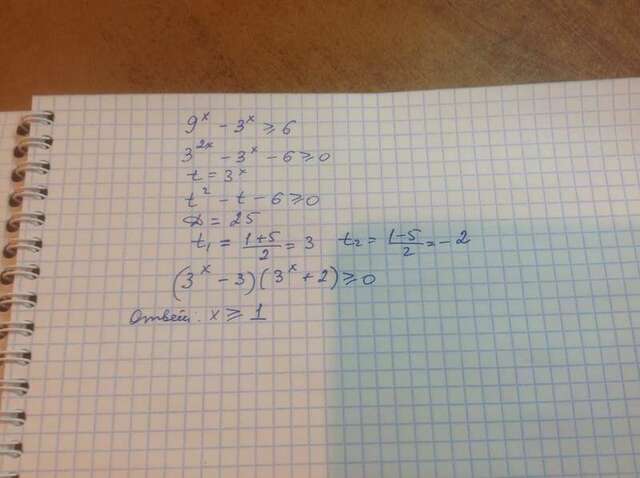 9ˣ - 3ˣ ≥ 6
3²ˣ - 3ˣ - 6 ≥ 0
t = 3ˣ
t² - t - 6 ≥ 0
D = 25
t₁ = (1+5)/2 = 3 t₂ = (1-5)/2 = -2
(3ˣ - 3)(3ˣ + 2) ≥ 0
Ответ: x ≥ 1